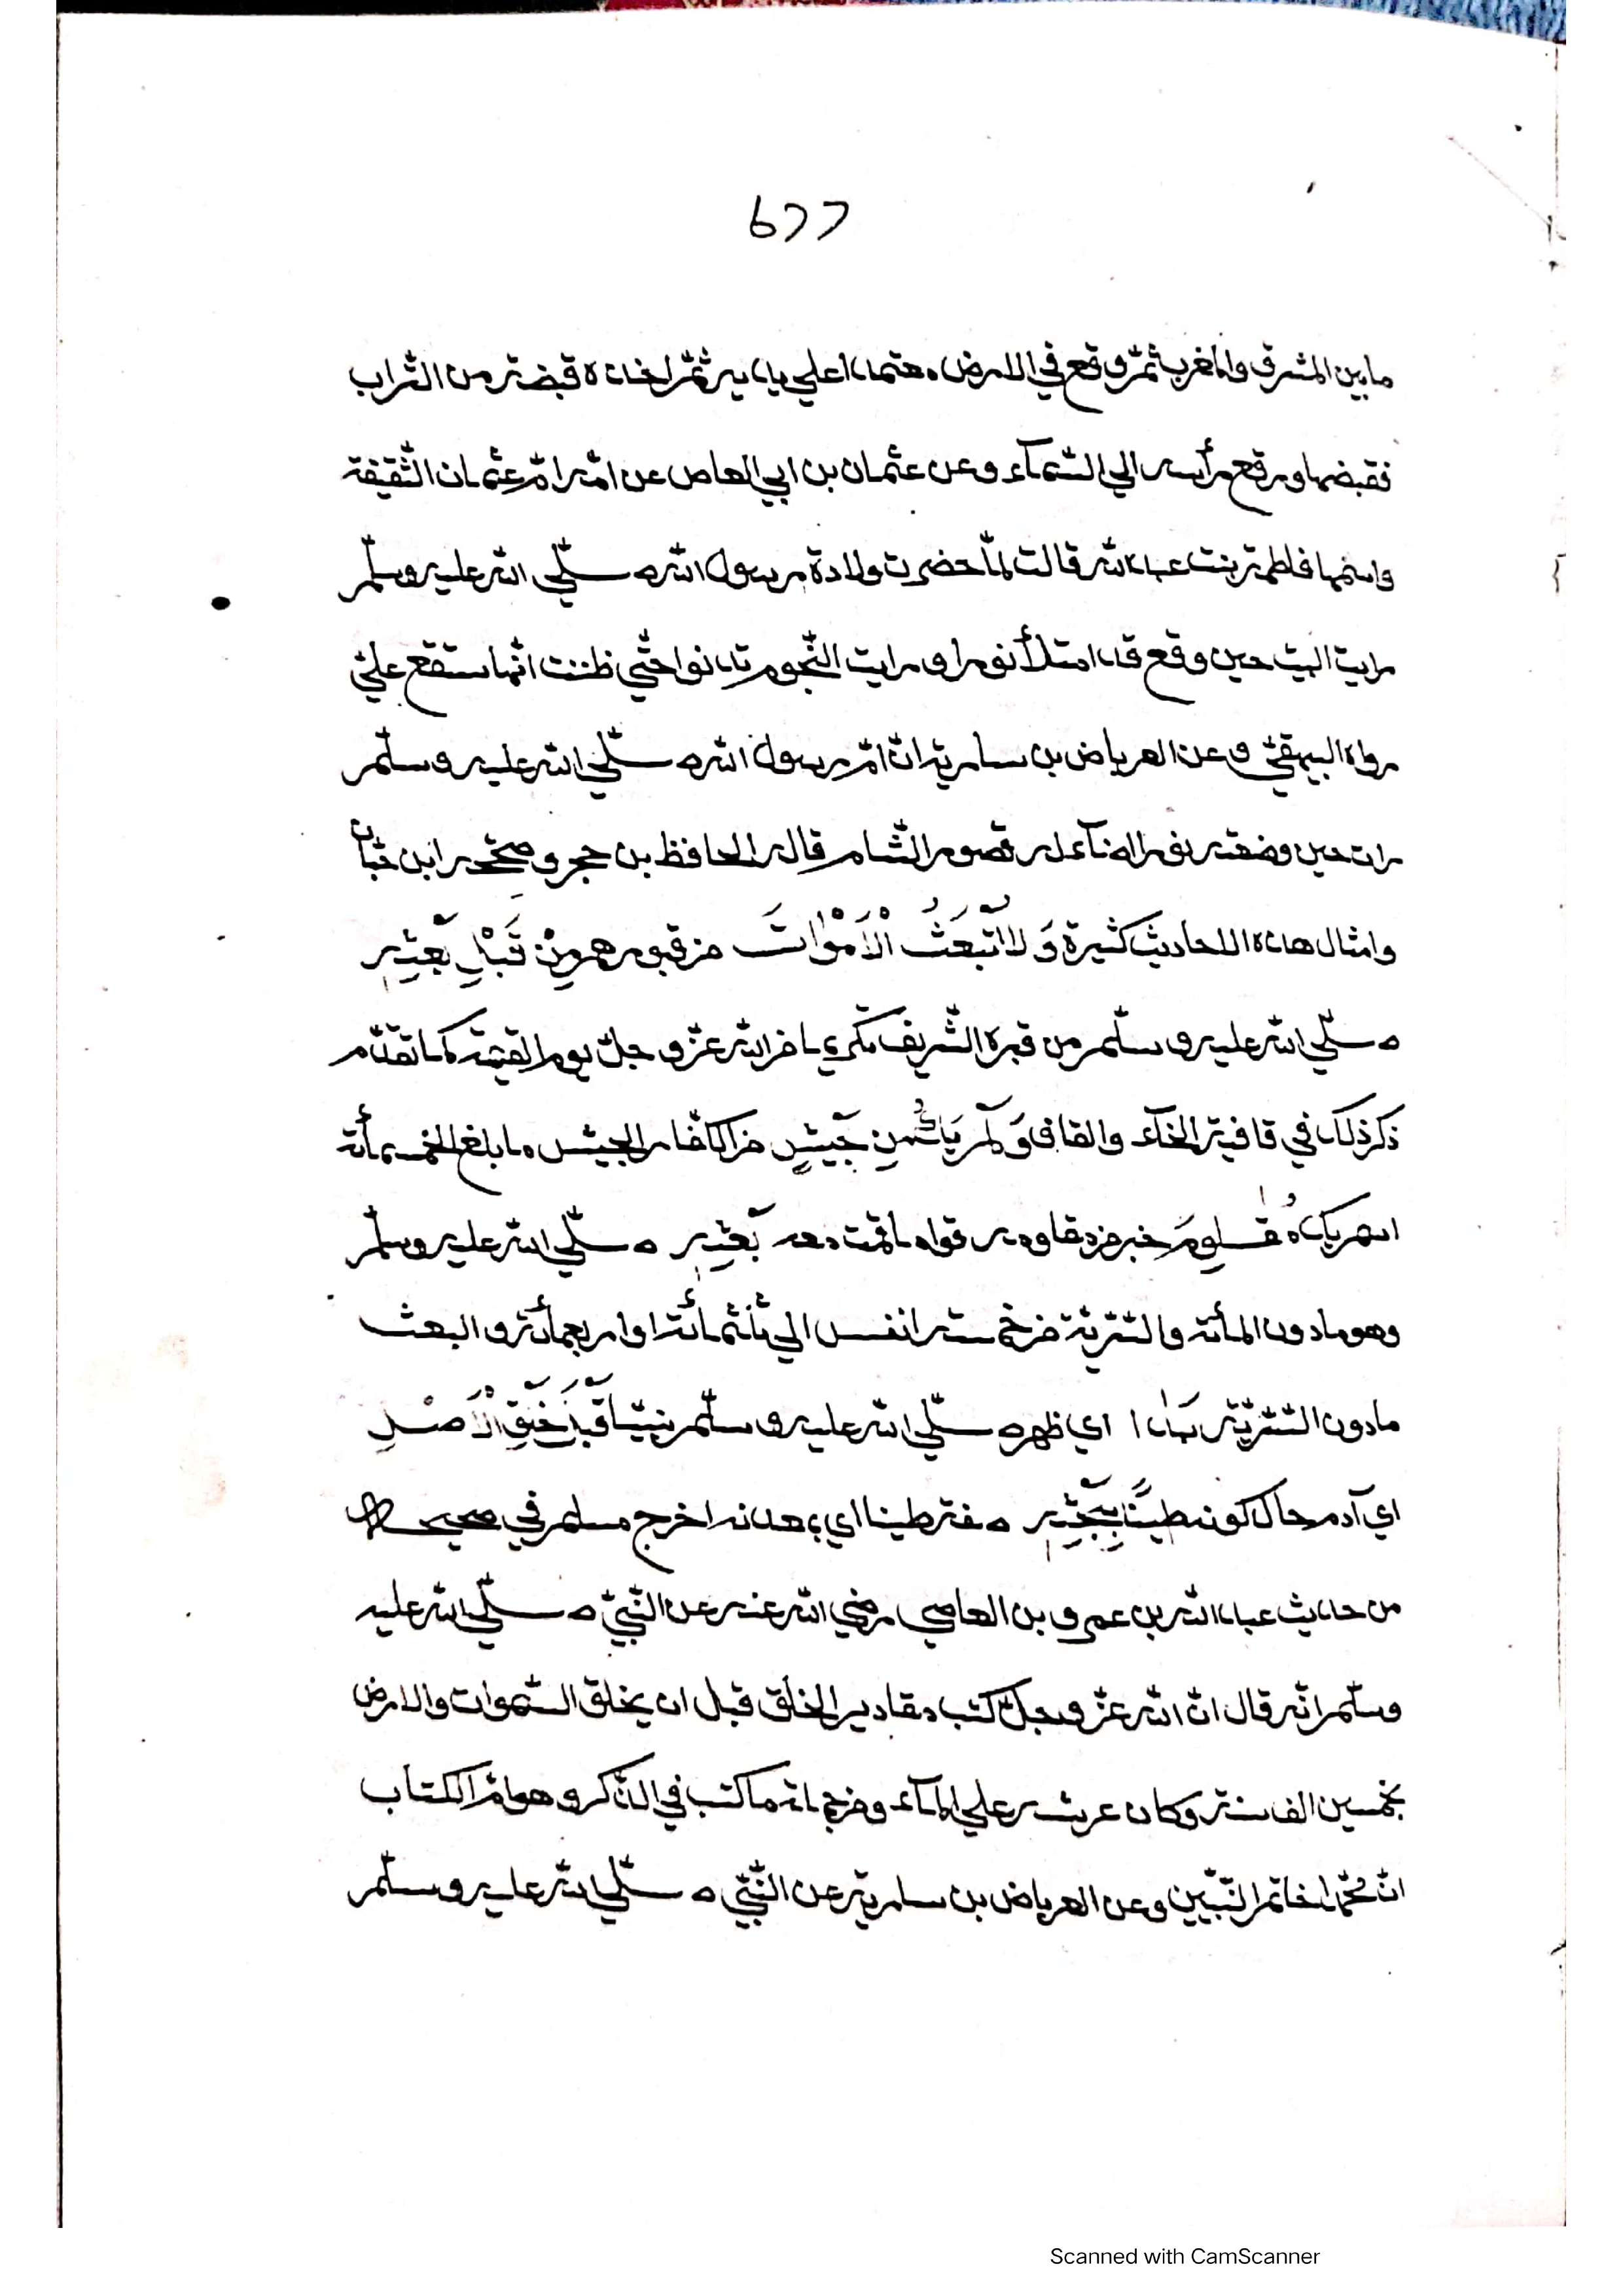 677
مابين المشرق والمغرب ثمّ وقع في الارض معتمدا علي يديه ثمّ اخذ قبضة من التّراب
فقبضها ورفع رأسه الي السّمآء وعن عثمان بن ابي العاص عن امّه امّ عثمان الثّقيفة
واسمها فاطمة بنت عبد الله قالت لمّا حضرت ولادة رسول الله صلّي الله عليه وسلّم
رايت البيت حين وقع قد امتلأ نورا و رايت النّجوم تدنوا حتّي ظننت انّها ستقع عليّ
رواه البيهقيّ وعن العرباض بن سارية انّ امّ رسول الله صلّي الله عليه وسلّم
رات حين وضعته نورا اضآء له قصور الشّام قال الحافظ بن حجر وصحّحه ابن حبّان
وامثال هذه الاحاديث كثيرة وَلَا تُبْعَثُ الْاَمْوَاتَ من قبورهم مِنْ قَبْلِ بَعْثِهِ
صلّي الله عليه وسلّم من قبره الشّريف بامر الله عزّ و جلّ يوم القيمة كما تقدّم
ذكر ذلك في قافية الخآء والقاف وَلَمْ يَاتُ مِنْ جَيْشٍ من الكفّار الجيش ما بلغ الخمسمأة
خبر من مقاومة قواه ماقمت معه بَعْثِهِ صلّي الله عليه وسلّم
وهو مادون المأئة والسّريّة من خمسة انفس الي ثلثمائة او اربعمائة و البعث
مادون السّريّة اي ظهر صلّي الله عليه وسلّم نبيّا الْاَصْلِ
اي آدم حال كونه طينًا صفة طينا اي اخرج مسلم في صحيحه
من حديث عبد الله بن عمرو بن العاصي رضي الله عنه عن النّبيّ صلّي الله عليه
وسلّم انّه قال انّ الله عزّ وجلّ كتب مقادير الخلق قبل ان يخلق السّموات والارض
بخمسين الف سنة وكان عرشه علي المآء ومن جملة ما كتب في الذّكر و هو امّ الكتاب
انّ محمّدا خاتم النّبيّين وعن العرباض بن سارية عن النّبيّ صلّي الله عليه وسلّم
Scanned with CamScanner